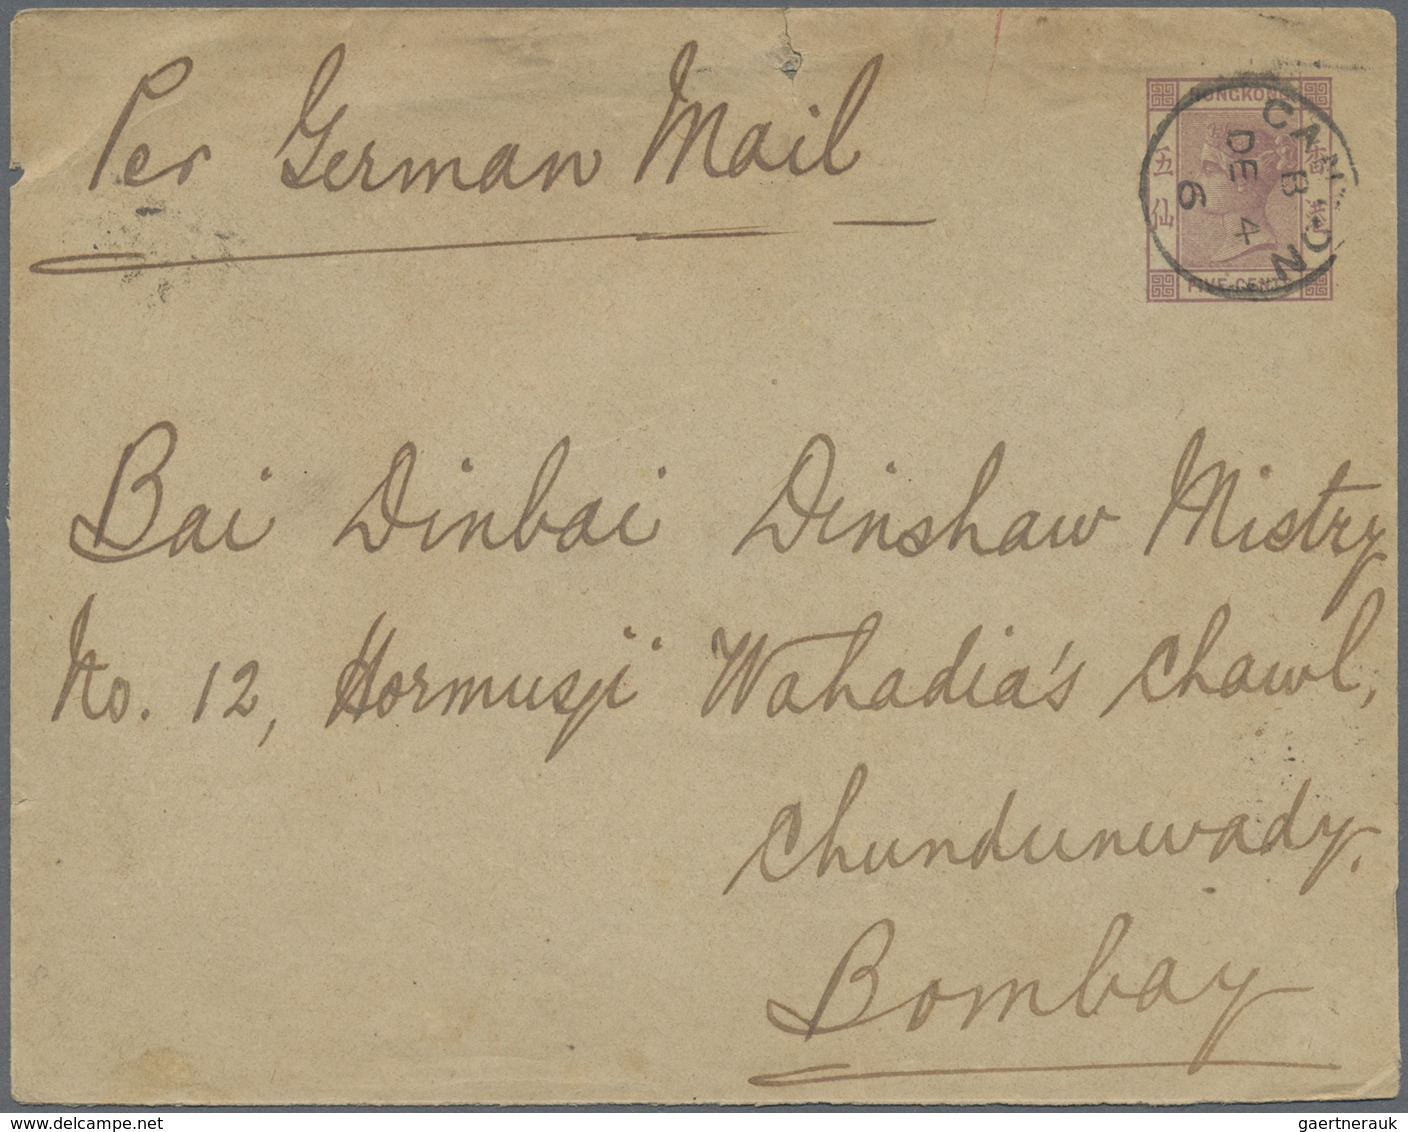 Per German Mail
HONGKONG
香港
五仙
FIVE CENTS
CANTON
B
DE 4
Bai Dinbai Dinshaw Mistry
No. 12, Hormusji Wahadia's Chawl,
Chundunwady.
Bombay
gaertnerauk